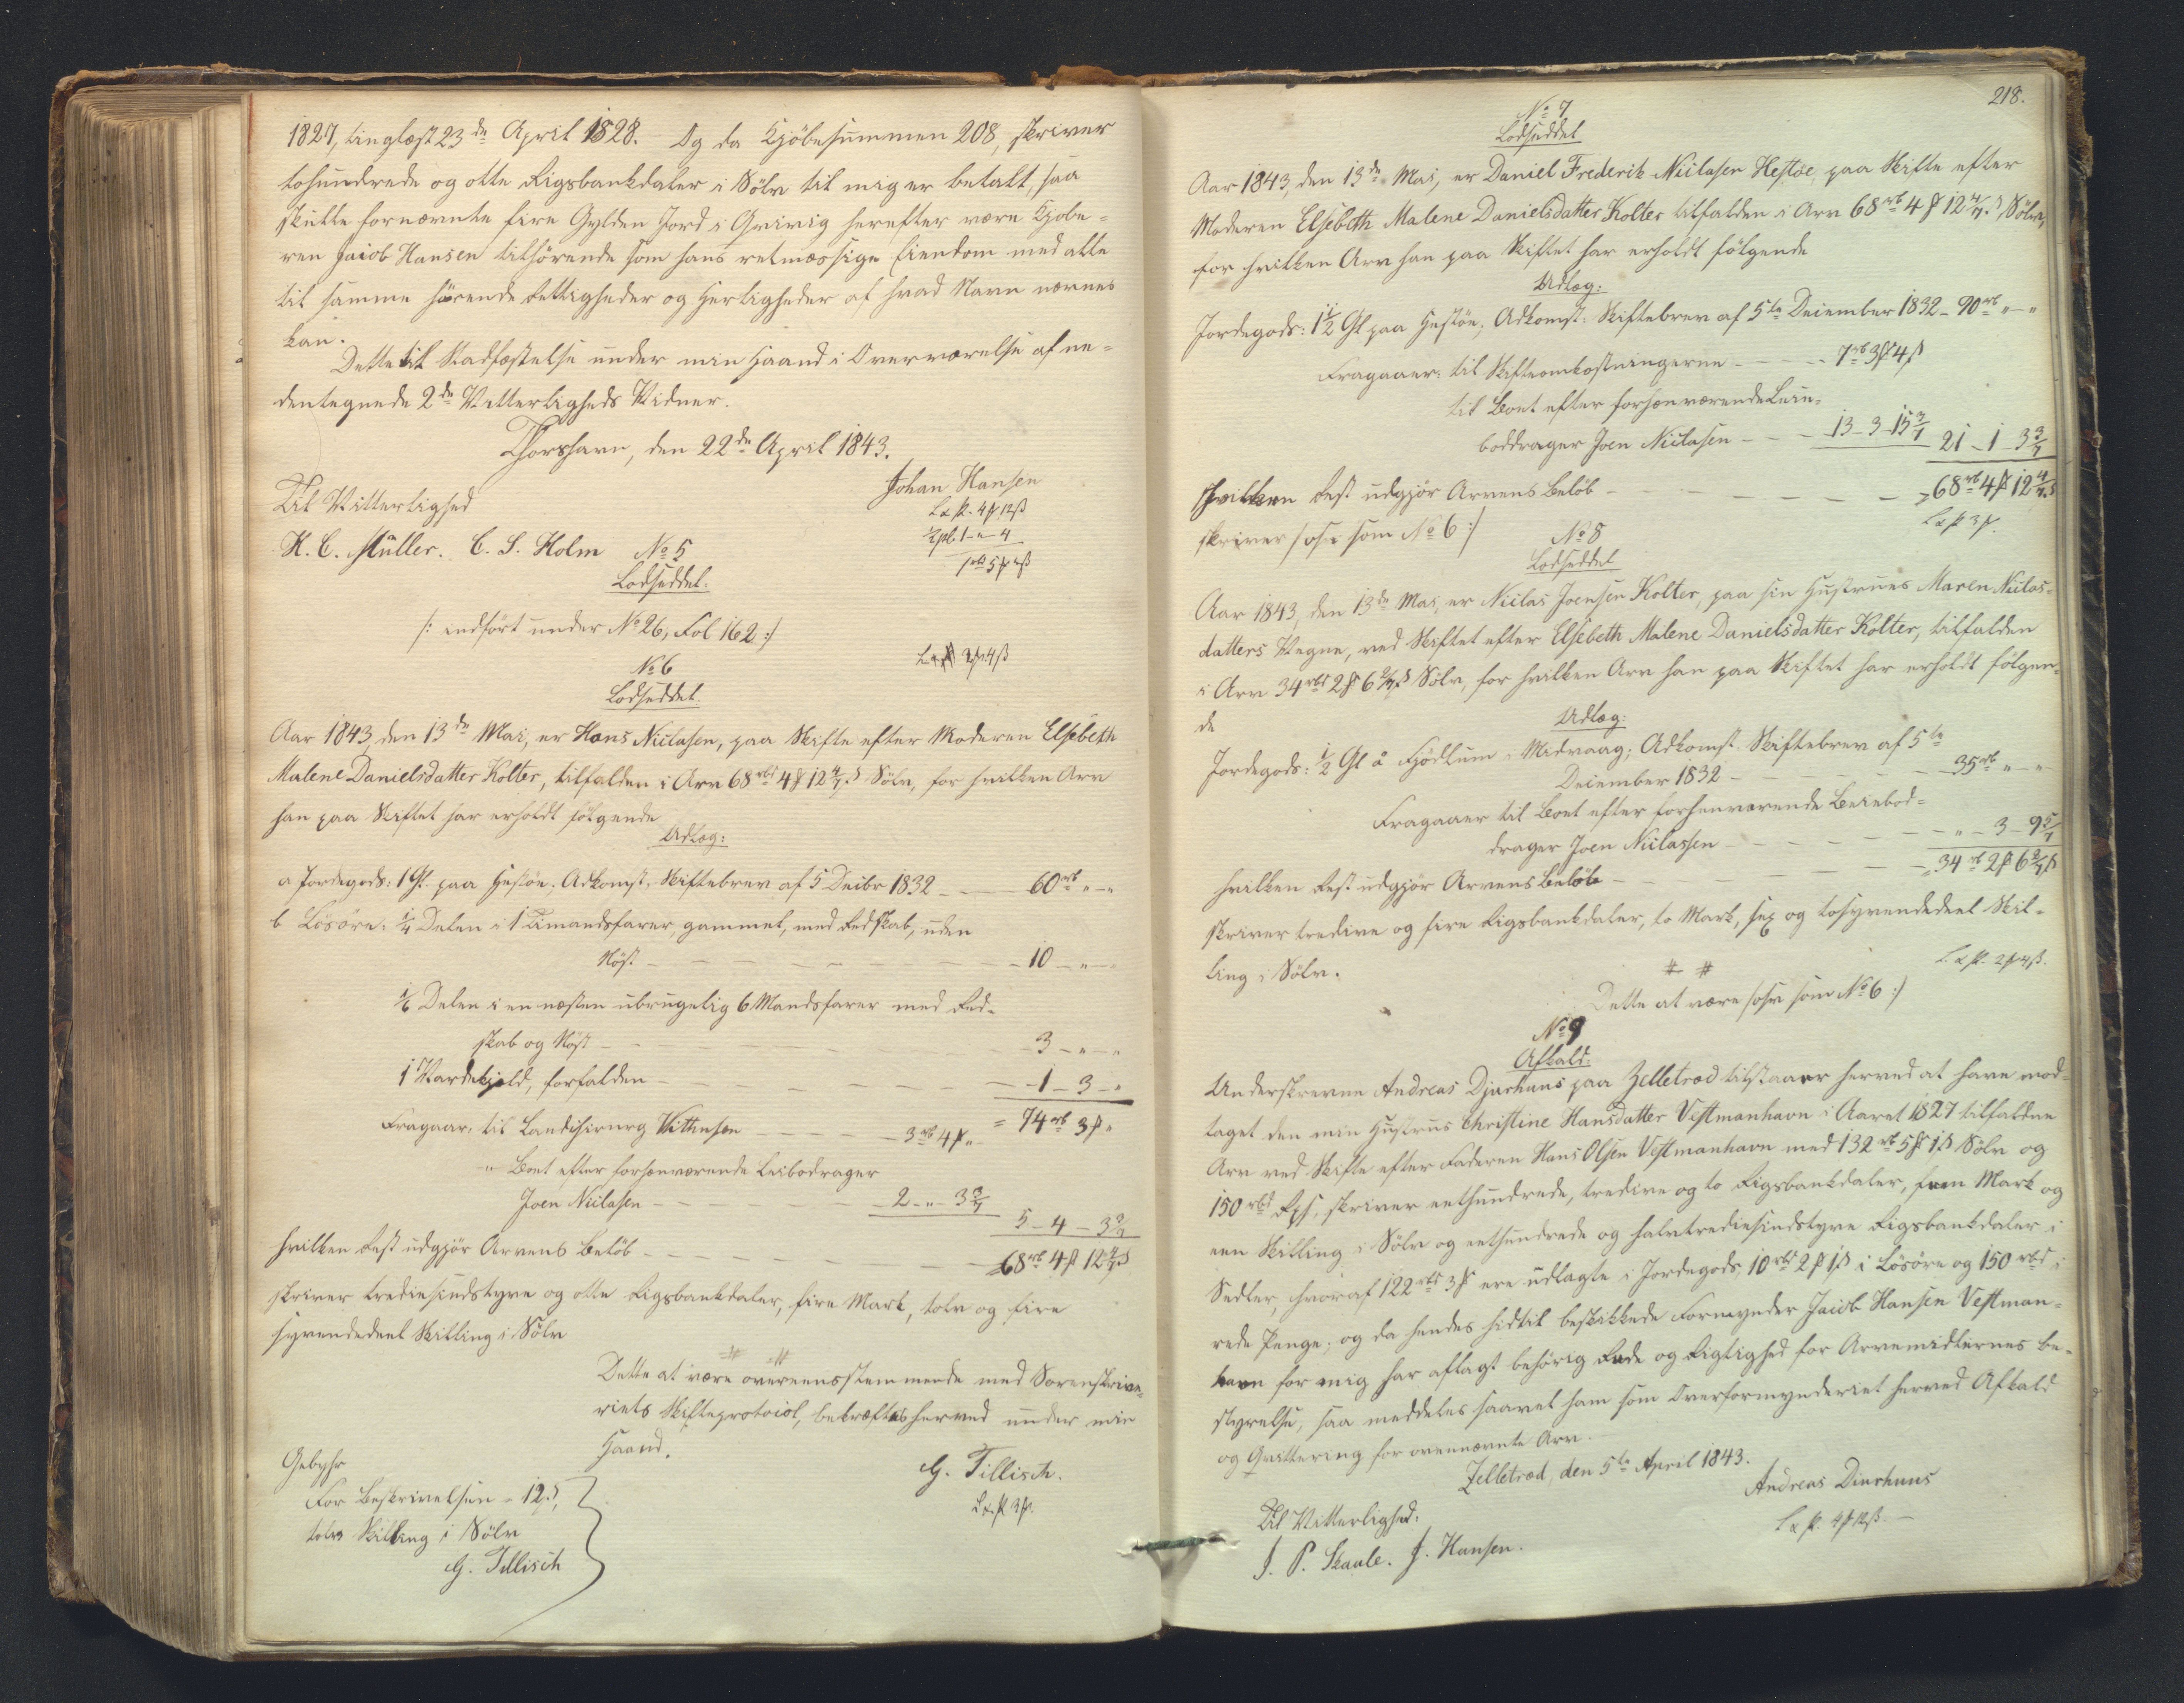 1827, tinglæst 23de April 1828. Og da Kjöbesummen 208, skriver
tohundrede og otte Rigsbankdaler i Sölv til mig er betalt, saa
skulle fornævnte fire Gylden Jord i Qvivig herefter være Kjöbe-
ren Jacob Hansen tilhörende som hans retmæssige Eiendom med alle
til samme hörende Rettigheder og Herligheder af hvad Navn nævnes
kan.
Dette til Stadfæstelse under min Haand i Overværelse af ne-
dentegnede 2de Vitterligheds Vidner.
Thorshavn, den 22de April 1843.
Johan Hansen
Til Vitterlighed
H. C. Müller. C. S. Holm
No 5
Lodseddel.
/: indfört under No 26, Fol 162 :/
No 6
Lodseddel.
Aar 1843 den 13de Mai, er Hans Niclasen, paa Skifte efter Moderen Elsebeth
Malene Danielsdatter Kolter, tilfalden i Arv 68 rbd 4 ß 12 4/7 ß Sölv, for hvilken Arv
han paa Skiftet har erholdt fölgende
Udlæg:
a Jordegods: 1 Gl. paa Hestöe; Adkomst, Skiftebrev af 5 Decbr 1832 — 60 rb " — "
b Lösöre: 1/4 Delen i 1 Timandsfarer, gammel, med Redskab, uden
Nöst — 10 — " —
1/6 Delen i en næsten ubrugelig 6 Mandsfarer med Red-
skab og Nöst — 3 — " — "
1 Vardekjold, forfalden — 1 — 3 — "
= 74 rb 3 ß "
Fragaar, til Landchirurg Vithusen — 3 rb 4 ß "
" Boet efter forhenværende Leibodrager
Joen Niclasen — 2 — " — 3 3/7
5 — 4 — 3 3/7
hvilken Rest udgjör Arvens Belöb — 68 rb 4 ß 12 4/7 ß
skriver trediesindstyve og otte Rigsbankdaler, fire Mark, tolv og fire
syvendedeel Skilling i Sölv
Dette at være overeensstemmende med Sorenskrive-
riets Skifteprotocol, bekræftes herved under min
Haand.
G. Tillisch.
Gebyhr
For Beskrivelsen - 12 ß,
tolv Skilling i Sölv
G. Tillisch
218.
No 7
Lodseddel
Aar 1843, den 13de Mai, er Daniel Frederik Niclasen Hestöe, paa Skifte efter
Moderen Elsebeth Malene Danielsdatter Kolter tilfalden i Arv 68 rb 4 ß 12 4/7 ß Sölv,
for hvilken Arv han paa Skiftet har erholdt fölgende
Udlæg:
Jordegods: 1 1/2 Gl paa Hestöe; Adkomst: Skiftebrev af 5te December 1832 — 90 rb " — "
Fragaaer: til Skifteomkostningerne — 7 rb 3 ß 4 ß
til Boet efter forhenværende Leie-
boddrager Joen Niclasen — 13 — 3 — 15 3/7
21 — 1 — 3 3/7
hvilken Rest udgjör Arvens Belöb — 68 rb 4 ß 12 4/7 ß
skriver /osv som No 6 :/
No 8
Lodseddel
Aar 1843, den 13de Mai, er Niclas Joensen Kolter, paa sin Hustrues Maren Niclas-
datters Vegne, ved Skiftet efter Elsebeth Malene Danielsdatter Kolter, tilfalden
i Arv 34 rbd 2 ß 6 2/7 ß Sölv, for hvilken Arv han paa Skiftet har erholdt fölgen-
de
Udlæg:
Jordegods: 1/2 Gl å Gjödlum i Midvaag; Adkomst Skiftebrev af 5te
December 1832 — 35 rb " "
Fragaaer til Boet efter forhenværende Leiebod-
drager Joen Niclassen — " — 3 — 9 5/7
hvilken Rest udgjör Arvens Belöb — 34 rb 2 ß 6 2/7 ß
skriver tredive og fire Rigsbankdaler, to Mark, sex og tosyvendedeel Skil-
ling i Sölv.
Dette at være /osv som No 6 :/
No 9
Afkald.
Underskrevne Andreas Djurhuus paa Zelletræd tilstaaer herved at have mod-
taget den min Hustrues Christine Hansdatter Vestmanhavn i Aaret 1827 tilfaldne
Arv ved Skifte efter Faderen Hans Olsen Vestmanhavn med 132 rb 5 ß 1 ß Sölv og
150 rbd Rps, skriver eethundrede, tredive og to Rigsbankdaler, fem Mark og
een Skilling i Sölv og eethundrede og halvtrediesindstyve Rigsbankdaler i
Sedler, hvoraf 122 rbd 3 ß ere udlagte i Jordegods, 10 rbd 2 ß 1 ß i Lösöre og 150 rbd i
rede Penge; og da hendes hidtil beskikkede Formynder Jacob Hansen Vestman-
havn for mig har aflagt behörig Rede og Rigtighed for Arvemidlernes be-
styrelse, saa meddeles saavel ham som Overformynderiet herved Afkald
og Qvittering for ovennævnte Arv.
Zelletræd, den 5te April 1843.
Andreas Diurhuus
Til Vitterlighed:
J. P. Skaale. J. Hansen.